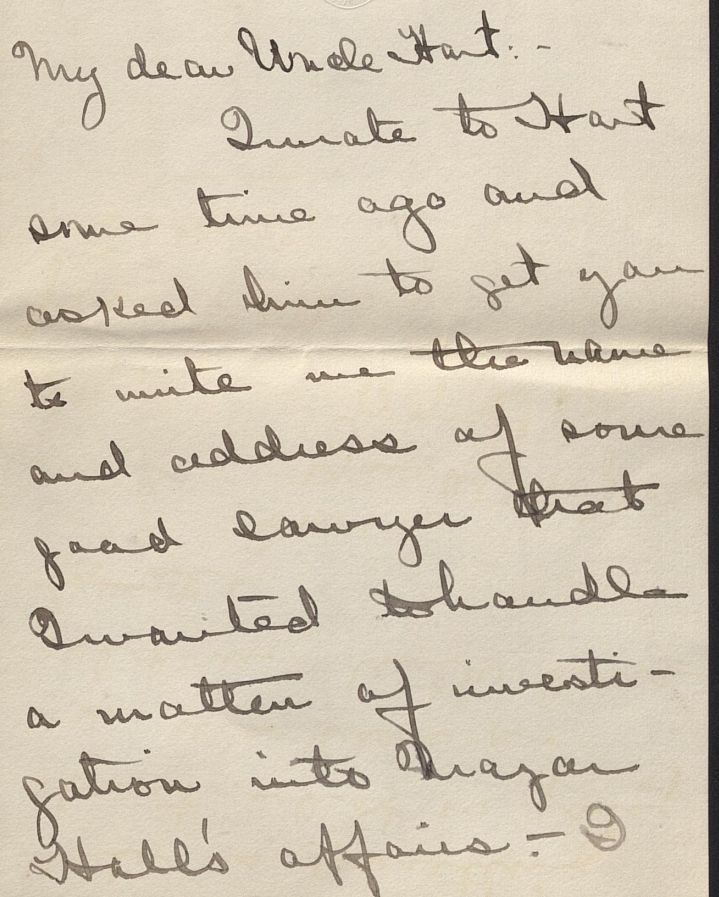 My dear Uncle Hart:-
I wrote to Hart
some time ago and
asked him to get you
to write me the name
and address of some
good lawyer that
I wanted to handle
a matter of investi-
gation into Major
Hall's affairs - I